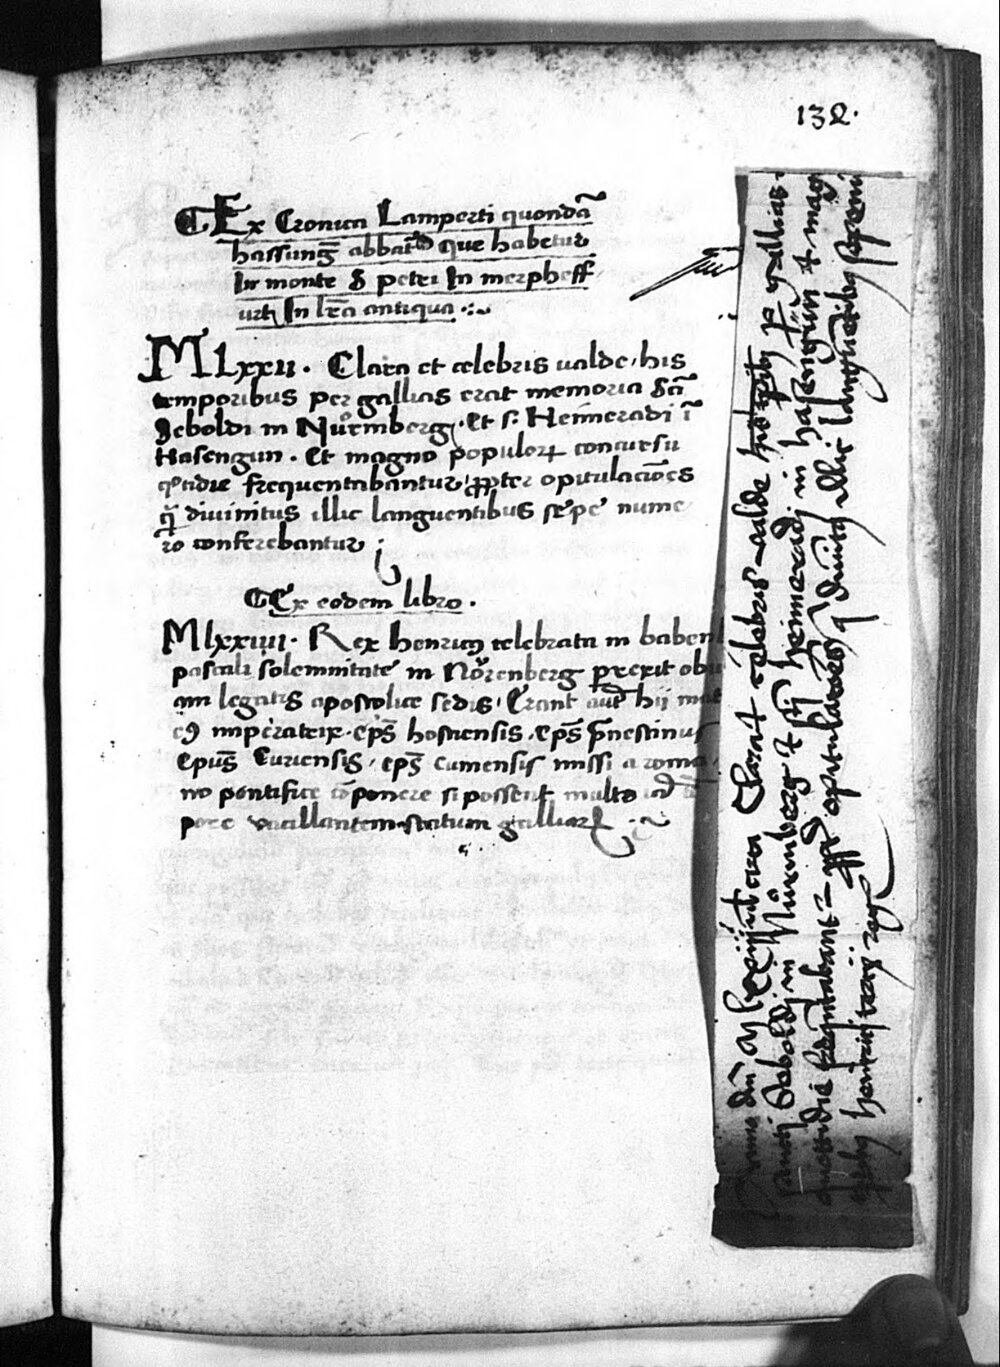 132.
Ex Cronica Lamperti quondã
hassung̃ abbatis que habetur
In monte S petri In merpheff
urt In lr̃a antiqua
Mlxxii. Clara et celebris ualde his
temporibus per gallias erat memoria Sc̃i
Seboldi in Nůrmberg. Et s. Heimeradi ĩ
Hasengun. Et magno populorꝝ concursu
qͦtidie frequentabantur ꝓpter opitulacões
q̃ diuinitus illic languentibus sepe nume
ro conferebantur
Ex eodem libro.
Mlxxiiii. Rex henricꝰ celebrata in babenb
pascali solemnitate in Nőrenberg perexit obu
am legatis apostolice sedis. Erant aut̃ hij mat
cꝰ imperatrix. ep̃s hostiensis. ep̃s p̃nestinus
epus̃ Curiensis. ep̃s cumensis missi a roma
no pontifice cõponere si possent multo iã
pore vacillantem statum galliarꝝ
dñi Clara ⁊ celebris ualde his tp̃ibꝫ ꝑ gallias
sancti Seboldi in Nůrmberg ⁊ sc̃i heimeradi in hasengun ⁊ mag
quottidie frequentabantᷣ opitulacões q̃ diuinitꝰ illic languentibꝫ sepenu
henrici regis